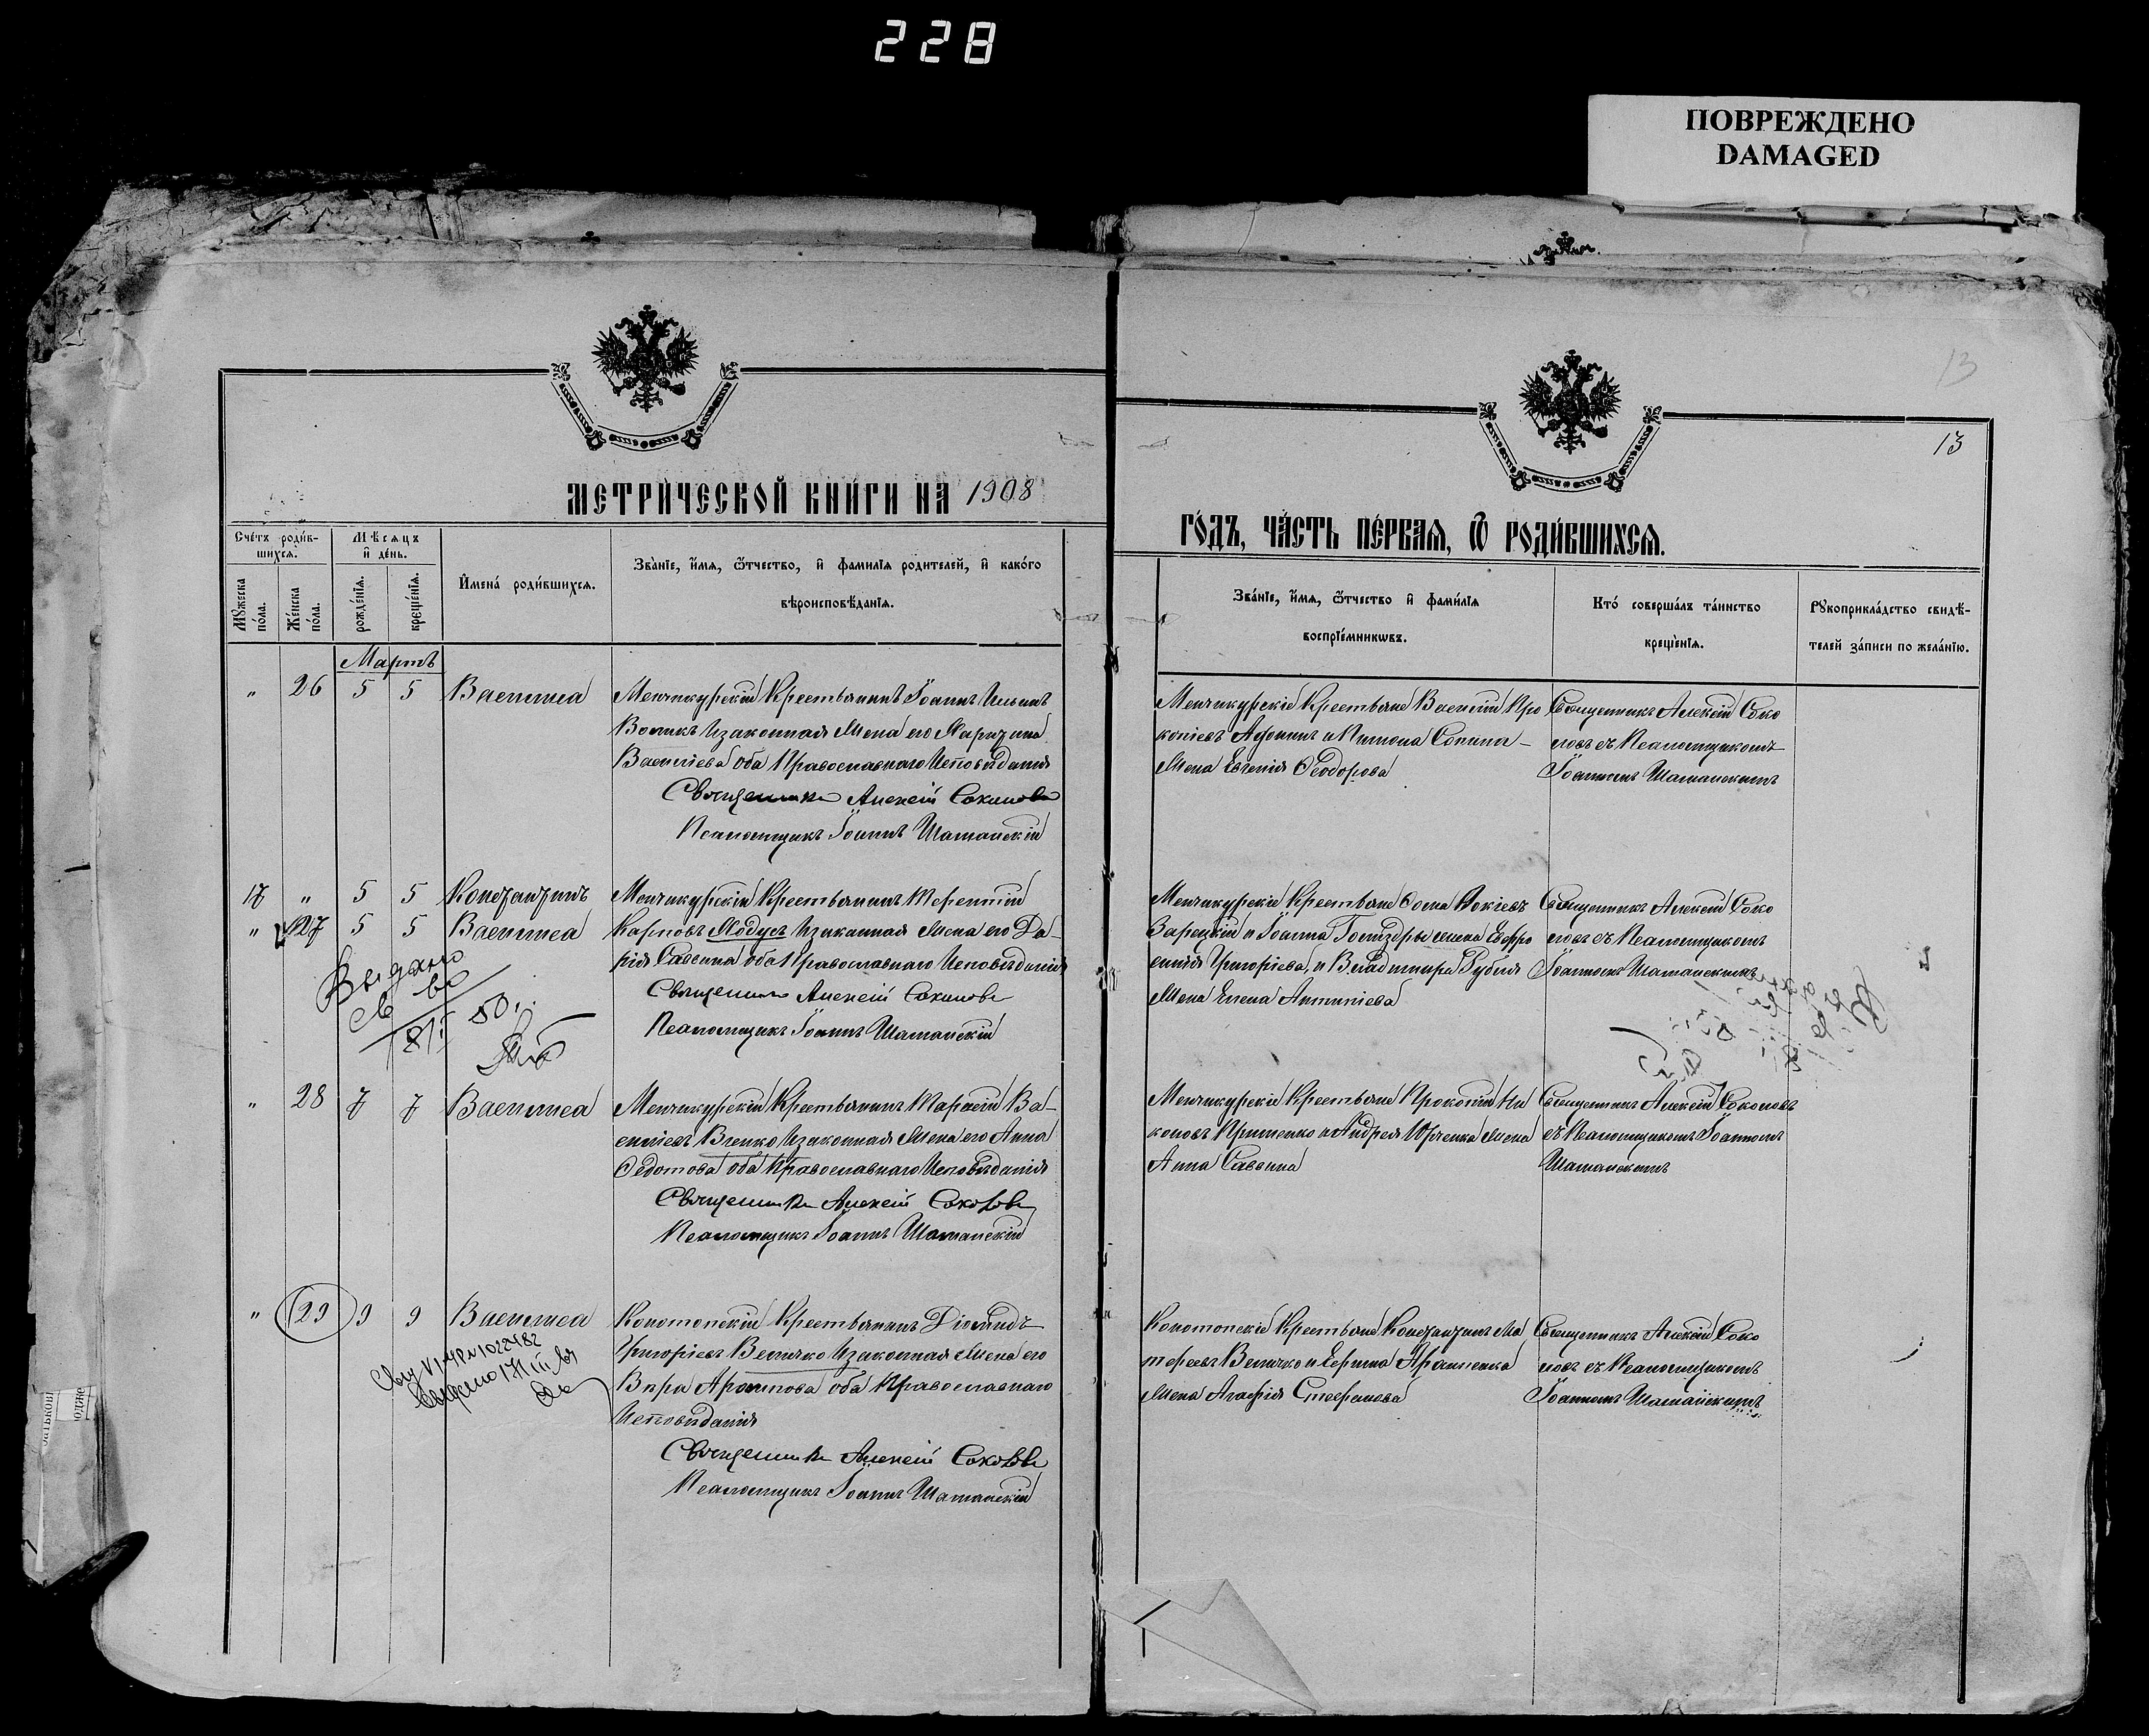 228
ПОВРЕЖДЕНО
DAMAGED
13
13
МЕТРИЧЕСКОЙ КНИГИ НА 1908
ГОДЪ, ЧАСТЬ ПЕРВАЯ, Ѿ РОДИВШИХСЯ.
Счетъ родив-
шихся.
Мѣсяцъ
и день.
Мужеска
пола.
Женска
пола.
рожденія.
крещенія.
Имена родившихся.
Званіе, имя, ѿтчество, и фамилія родителей, и какого
вѣроисповѣданія.
Званіе, имя, ѿтчество и фамилія
воспріемниковъ.
Кто совершалъ таинство
крещенія.
Рукоприкладство свидѣ-
телей записи по желанію.
Мартъ
" 26 5 5 Василиса
Менчикурскій Крестьянинъ Іоаннъ Ильинъ
Воликъ и законная жена его Харитина
Василіева оба Православнаго Исповѣданія
Священникъ Алексій Соколовъ
Псаломщикъ Іоаннъ Шаманскій
Менчикурскіе Крестьяне Василій Про
копіевъ Афонинъ и
жена Евгенія Ѳеодорова
Священникъ Алексій Соко
ловъ съ Псаломщикомъ
Іоанномъ Шаманскимъ
17 " 5 5 Константинъ
" 27 5 5 Василиса
Менчикурскій Крестьянинъ Терентій
Карповъ Ходусъ и законная жена его Да-
рія Саввина оба Православнаго Исповѣданія
Священникъ Алексій Соколовъ
Псаломщикъ Іоаннъ Шаманскій
Менчикурскіе Крестьяне Ѳома
Зарецкій и Іоанна жена Евфро
синія Григоріева, и Владиміра Губия
жена Елена Антипіева
Священникъ Алексій Соко
ловъ съ Псаломщикомъ
Іоанномъ Шаманскимъ
Выдано
св во
50 г.
" 28 7 7 Василиса
Менчикурскій Крестьянинъ Тарасій Ва-
силіевъ Власенко и законная жена его Анна
Ѳедотова оба Православнаго Исповѣданія
Священникъ Алексій Соколовъ
Псаломщикъ Іоаннъ Шаманскій
Менчикурскіе Крестьяне Прокопій Ни
коновъ и Андрея Юрченка жена
Анна Саввина
Священникъ Алексій Соколовъ
съ Псаломщикомъ Іоанномъ
Шаманскимъ
" 29 9 9 Василиса
Конотопскій Крестьянинъ Діомидъ
Григоріевъ Величко и законная жена его
Вѣра Архипова оба Православнаго
Исповѣданія
Священникъ Алексій Соколовъ
Псаломщикъ Іоаннъ Шаманскій
Конотопскіе Крестьяне Константинъ Ма
тѳеевъ Величко и
жена Агафія Стефанова
Священникъ Алексій Соко
ловъ съ Псаломщикомъ
Іоанномъ Шаманскимъ